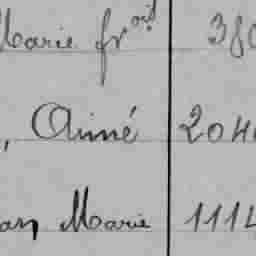 Marie fr^çois 380
, Aimé 204
an Marie 1114